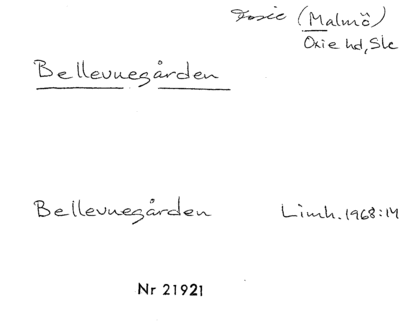 (Malmö)
Oxie hd, Sk
Bellevuegården
Bellevuegården Limh. 1968:14
Nr 21921